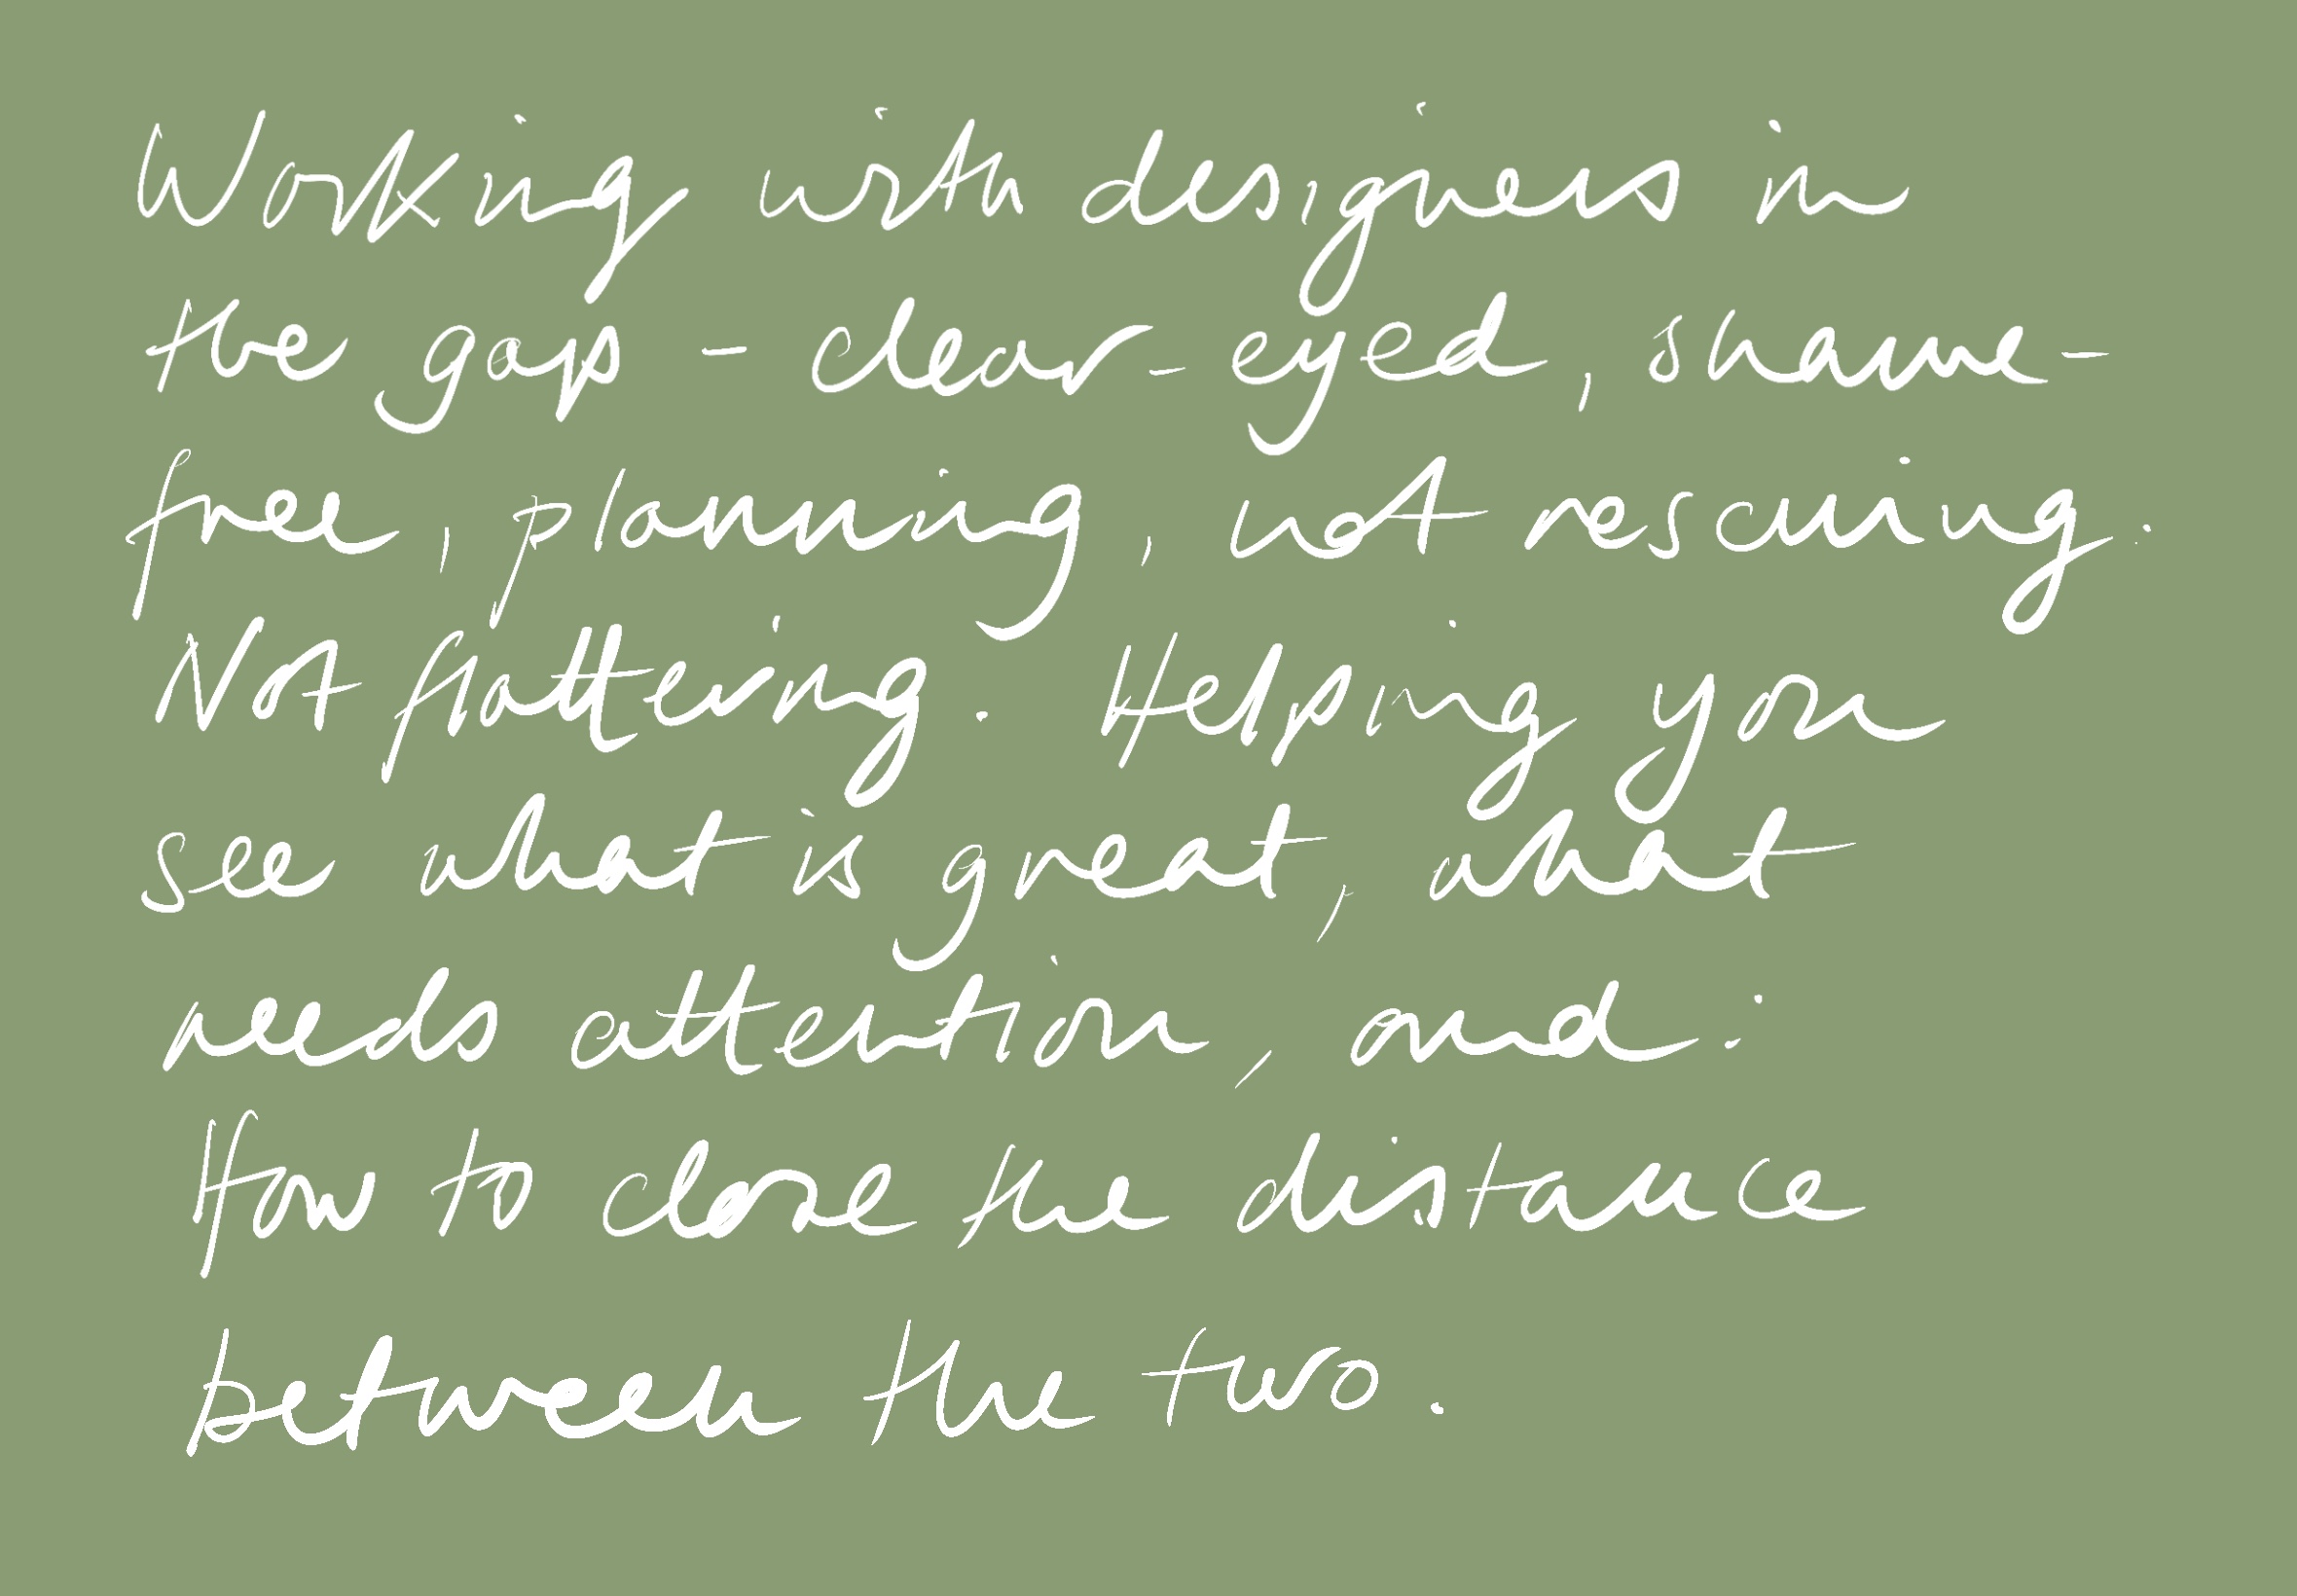 Working with designers in
the gap - clear-eyed, shame-
free, planning, not rescuing.
Not flattering. Helping you
see what is great, what
needs attention, and:
How to close the distance
between the two.